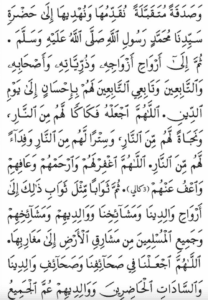 وَصَدَقَةً مُتَقَبَّلَةً نُقَدِّمُهَا وَنُهْدِيهَا إِلَىٰ حَضْرَةِ
سَيِّدِنَا مُحَمَّدٍ رَسُولِ اللهِ صَلَّى اللهُ عَلَيْهِ وَسَلَّمَ .
ثُمَّ إِلَىٰ أَرْوَاجِ أَزْوَاجِهِ، وَذُرِّيَّاتِهِ، وَأَصْحَابِهِ،
وَالتَّابِعِينَ وَتَابِعِي التَّابِعِينَ لَهُمْ بِإِحْسَانٍ إِلَىٰ يَوْمِ
الدِّينِ. اَللّٰهُمَّ اجْعَلْهُ فَكَاكًا لَهُمْ مِنَ النَّارِ،
وَنَجَاةً لَهُمْ مِّنَ النَّارِ. وَسِتْرًا لَهُمْ مِنَ النَّارِ وَفِدَآءً
لَهُمْ مِّنَ النَّارِ. اَللّٰهُمَّ اغْفِرْلَهُمْ وَارْحَمْهُمْ وَعَافِهِمْ
وَاعْفُ عَنْهُمْ. ثُمَّ ثَوَابًا مِثْلَ ثَوَابِ ذٰلِكَ إِلَىٰ
أَرْوَاجِ وَالِدِينَا وَمَشَائِخِنَا وَوَالِدِيهِمْ وَمَشَائِخِهِمْ
وَجَمِيعِ الْمُسْلِمِينَ مِنْ مَشَارِقِ الْأَرْضِ إِلَىٰ مَغَارِبِهَا.
اَللّٰهُمَّ اجْعَلْنَا فِي صَحَائِفِنَا وَصَحَائِفِ وَالِدِينَا
وَالسَّادَاتِ الْحَاضِرِينَ وَوَالِدِيهِمْ عُمَّ الْجَمِيعَ